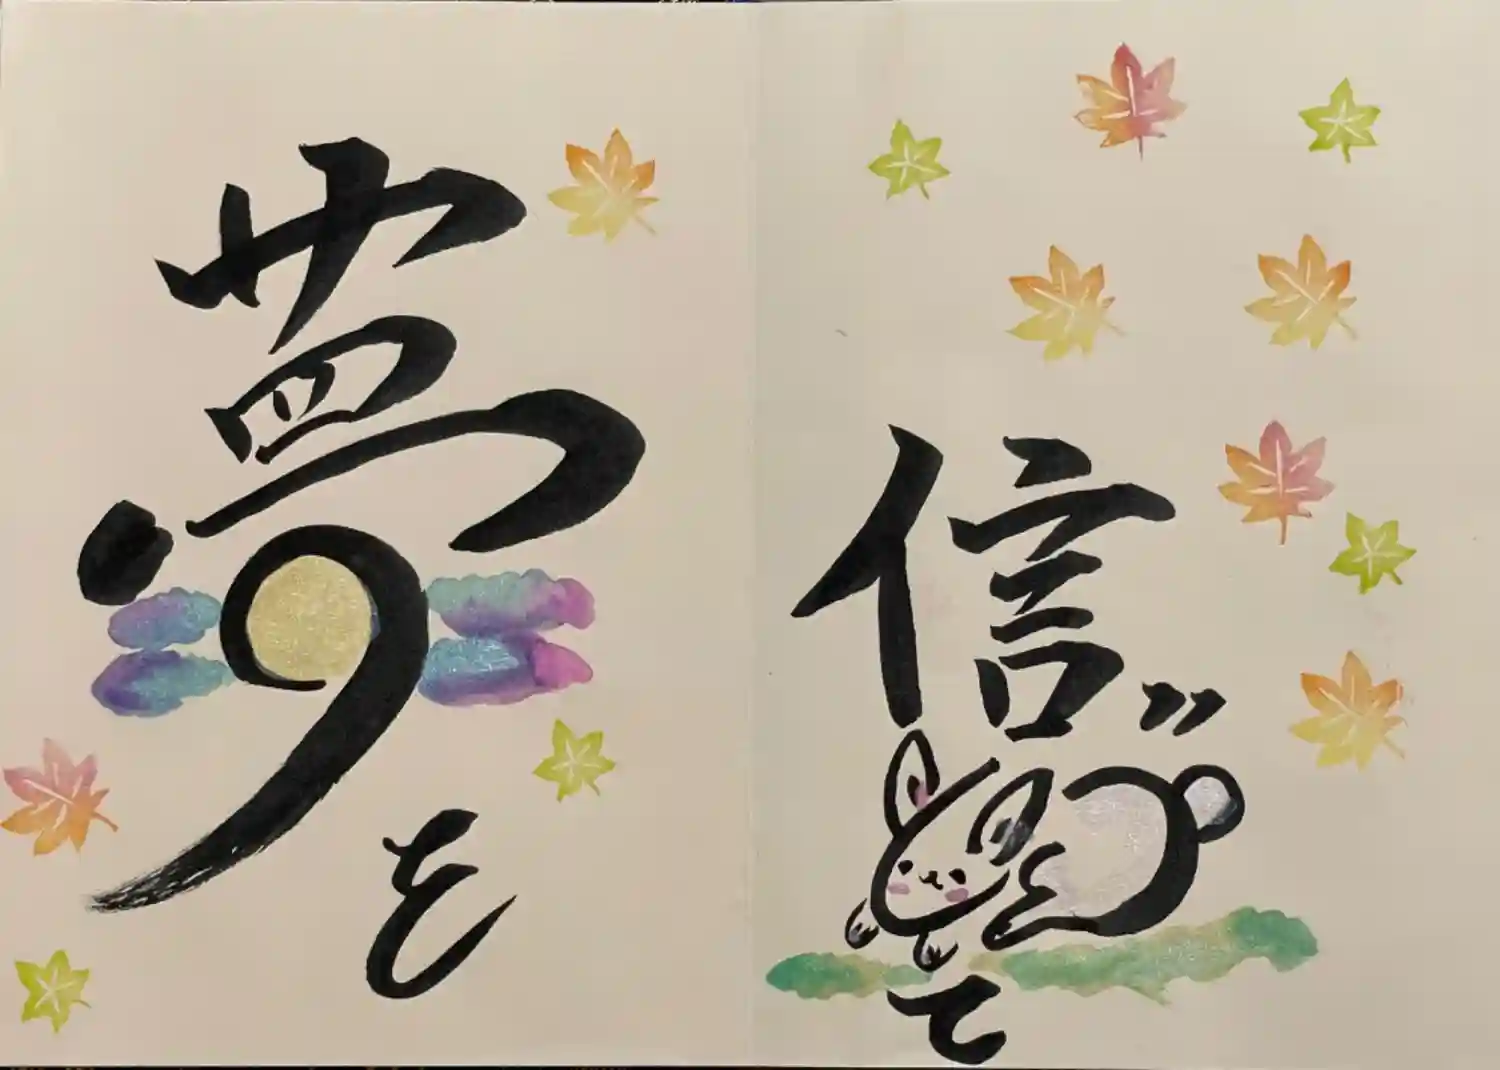 夢を
信じて